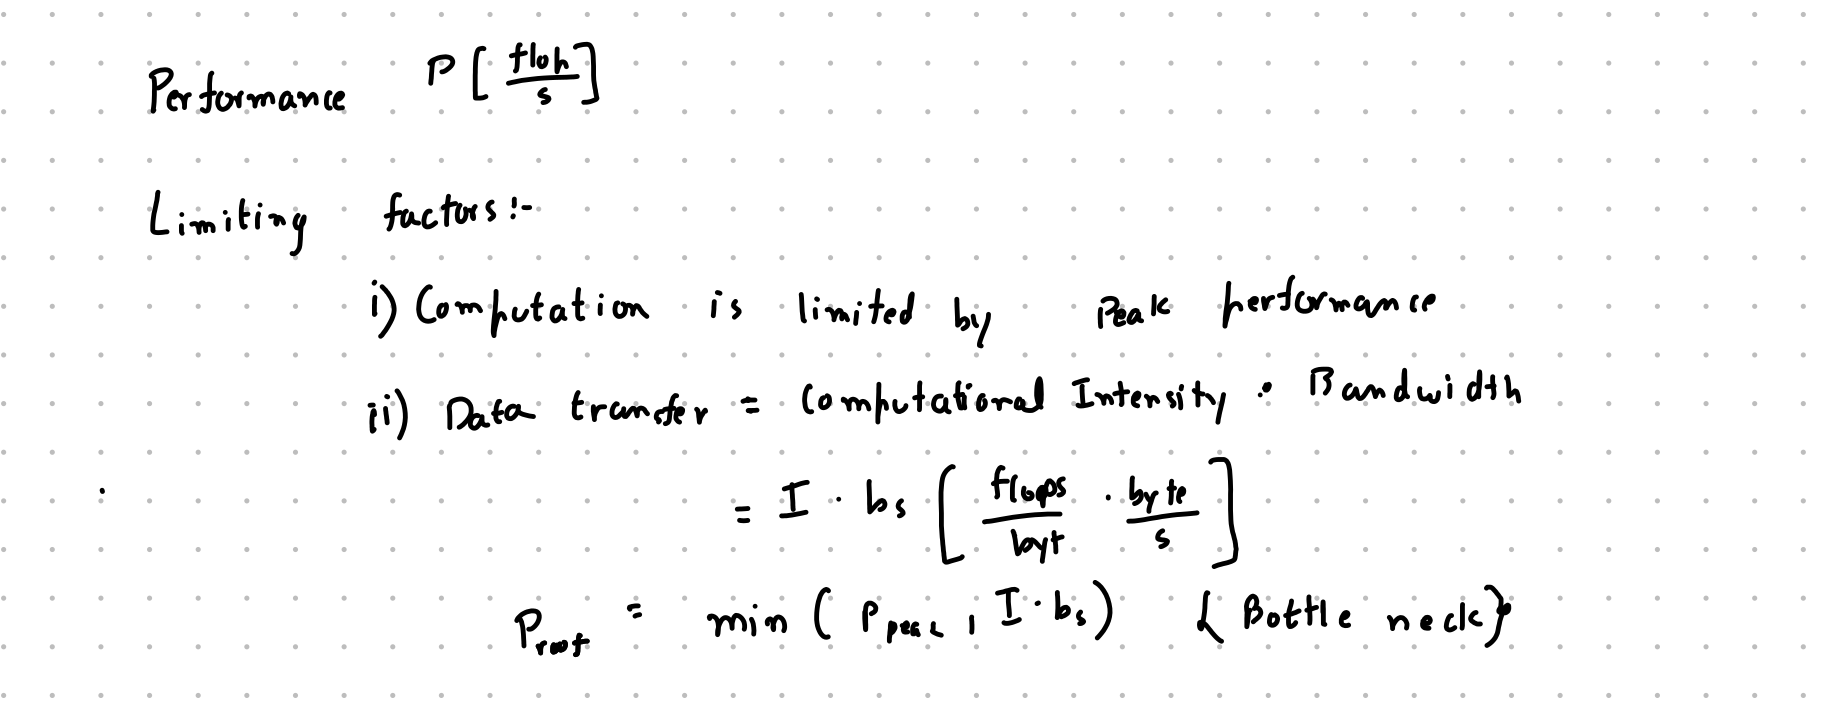 Performance P [ flop / s ]
Limiting factors :-
i) Computation is limited by Peak performance
ii) Data transfer = Computational Intensity · Bandwidth
= I · bs [ flops / byt · byte / s ]
Proof = min ( Ppeak , I · bs ) { Bottle neck }